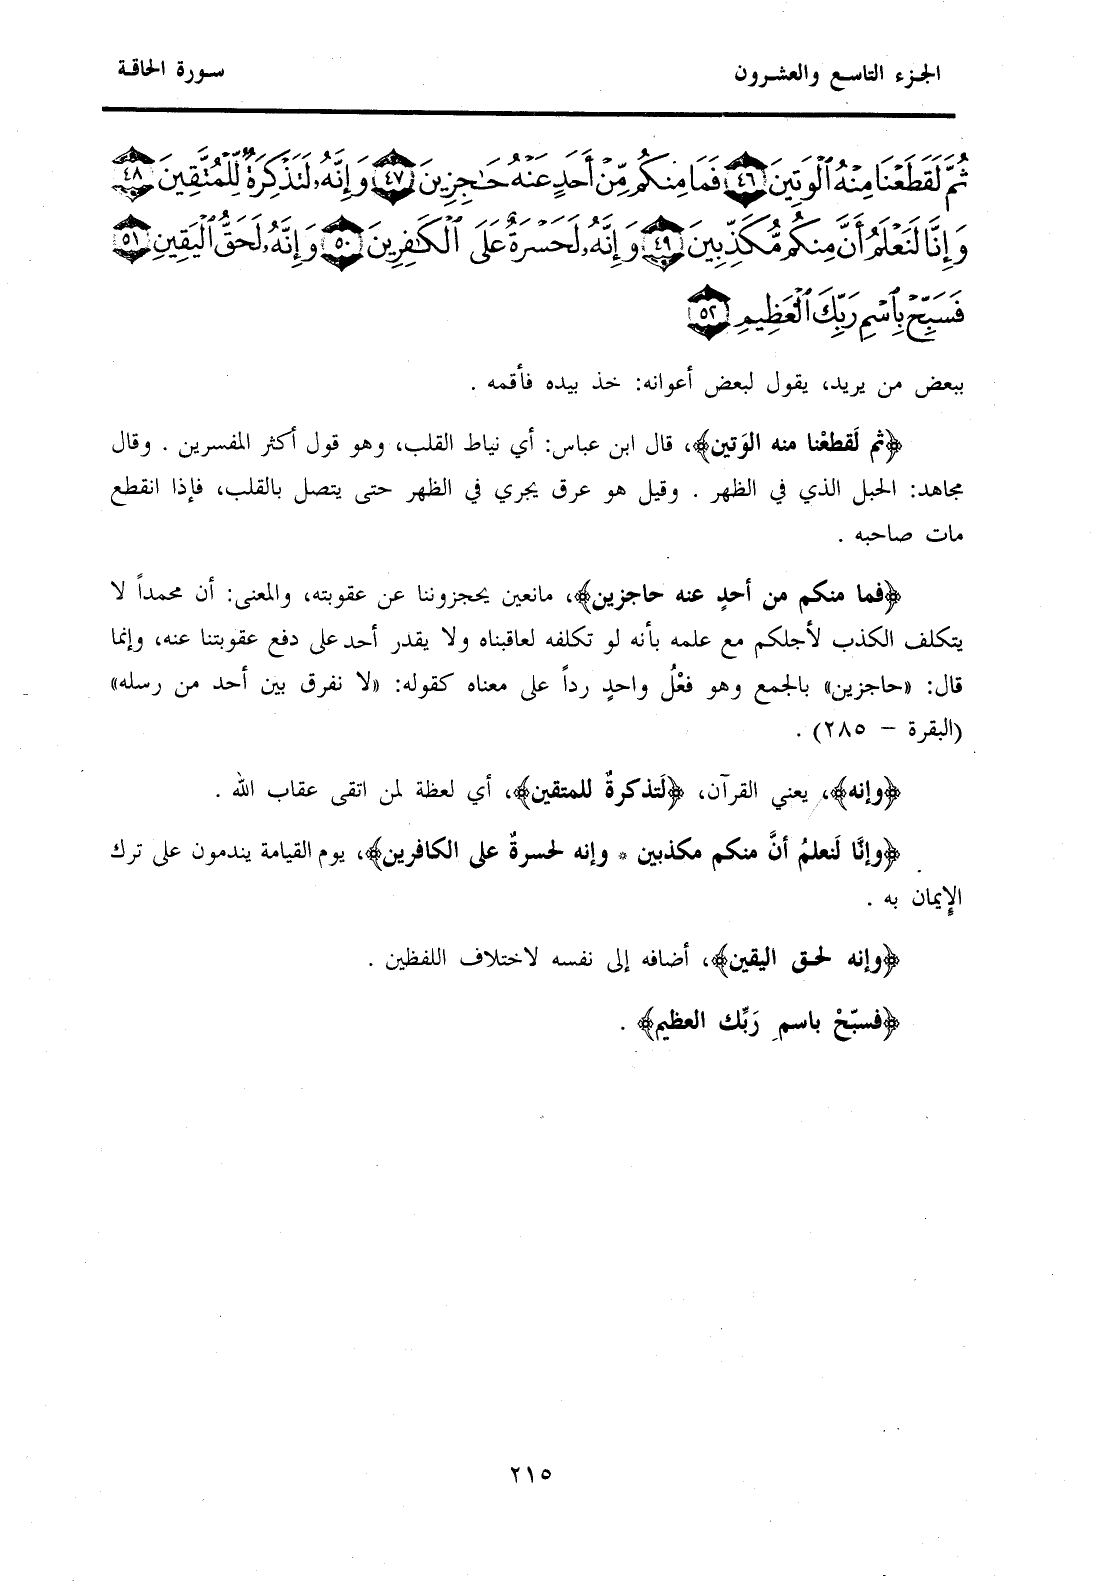 الجزء التاسع والعشرون
سورة الحاقة
ثُمَّ لَقَطَعْنَا مِنْهُ ٱلْوَتِينَ ٤٦ فَمَا مِنكُم مِّنْ أَحَدٍ عَنْهُ حَٰجِزِينَ ٤٧ وَإِنَّهُۥ لَتَذْكِرَةٌ لِّلْمُتَّقِينَ ٤٨
وَإِنَّا لَنَعْلَمُ أَنَّ مِنكُم مُّكَذِّبِينَ ٤٩ وَإِنَّهُۥ لَحَسْرَةٌ عَلَى ٱلْكَٰفِرِينَ ٥٠ وَإِنَّهُۥ لَحَقُّ ٱلْيَقِينِ ٥١
فَسَبِّحْ بِٱسْمِ رَبِّكَ ٱلْعَظِيمِ ٥٢
ببعض من يريد، يقول لبعض أعوانه: خذ بيده فأقمه .
﴿ثم لَقطعْنا منه الوَتين﴾، قال ابن عباس: أي نياط القلب، وهو قول أكثر المفسرين . وقال
مجاهد: الحبل الذي في الظهر . وقيل هو عرق يجري في الظهر حتى يتصل بالقلب، فإذا انقطع
مات صاحبه .
﴿فما منكم من أحدٍ عنه حاجزين﴾، مانعين يحجزوننا عن عقوبته، والمعنى: أن محمداً لا
يتكلف الكذب لأجلكم مع علمه بأنه لو تكلفه لعاقبناه ولا يقدر أحد على دفع عقوبتنا عنه، وإنما
قال: «حاجزين» بالجمع وهو فعْلُ واحدٍ رداً على معناه كقوله: «لا نفرق بين أحد من رسله»
(البقرة – ٢٨٥) .
﴿وإنه﴾، يعني القرآن، ﴿لَتذكرةٌ للمتقين﴾، أي لعظة لمن اتقى عقاب الله .
﴿وإنَّا لَنعلمُ أنَّ منكم مكذبين * وإنه لحسرةٌ على الكافرين﴾، يوم القيامة يندمون على ترك
الإيمان به .
﴿وإنه لحق اليقين﴾، أضافه إلى نفسه لاختلاف اللفظين .
﴿فسبّحْ باسمِ رَبِّك العظيم﴾ .
٢١٥